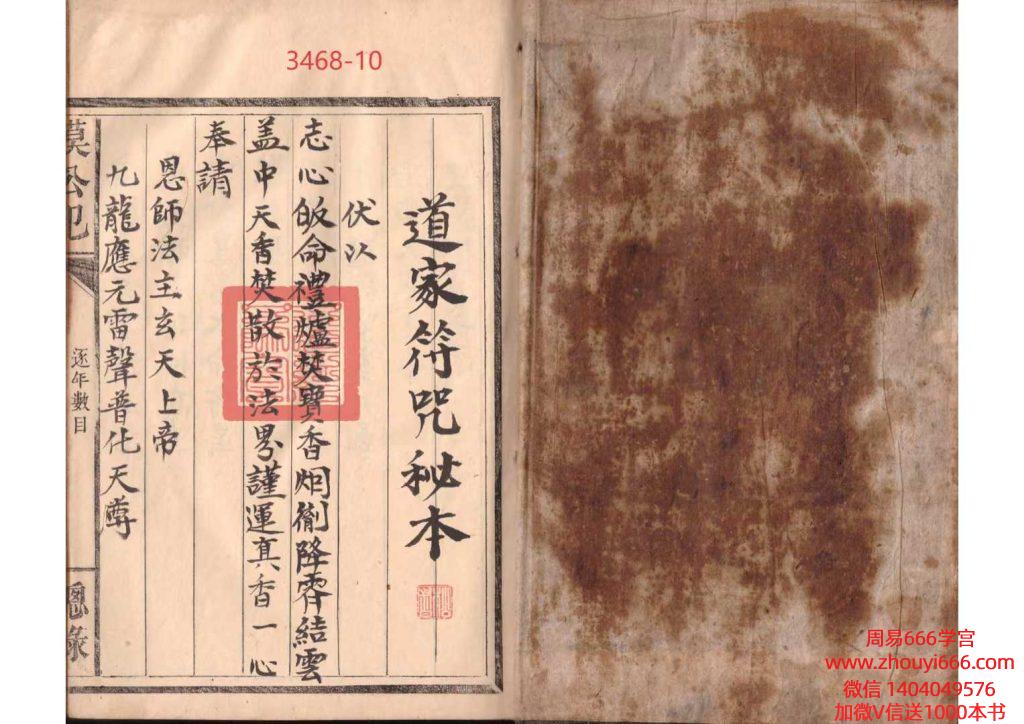 3468-10
道家符咒秘本
伏以
志心皈命禮爐焚寶香炯衛降霄結雲
盖中天香焚散於法界謹運真香一心
奉請
恩師法主玄天上帝
九龍應元雷聲普化天尊
逐年數目
周易666学宫
www.zhouyi666.com
微信 1404049576
加微V信送1000本书